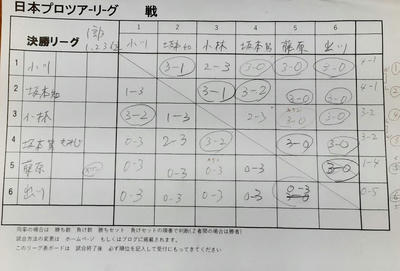 日本プロツアーリーグ 戦
決勝リーグ 1 2 3 4 5 6
小川 小林 藤原 出川
1 小川 3-1 2-3 3-0 3-0 3-0 4-1
2 1-3 3-1 3-2 3-0 3-0 4-1
3 小林 3-2 1-3 2-3 3-0 3-2
4 0-3 2-3 3-2 3-0 3-0 3-2
5 藤原 0-3 0-3 0-3 3-0 1-4
6 出川 0-3 0-3 0-3 0-3 0-3 0-5
同率の場合は 勝ち数 負け数 勝ちセット 負けセットの順番で判断(2者間の場合は勝者)
試合方法の変更は ホームページ もしくはブログに掲載されます。
このリーグ表ボードは 試合終了後 必ず順位を記入して受付にもってきてください